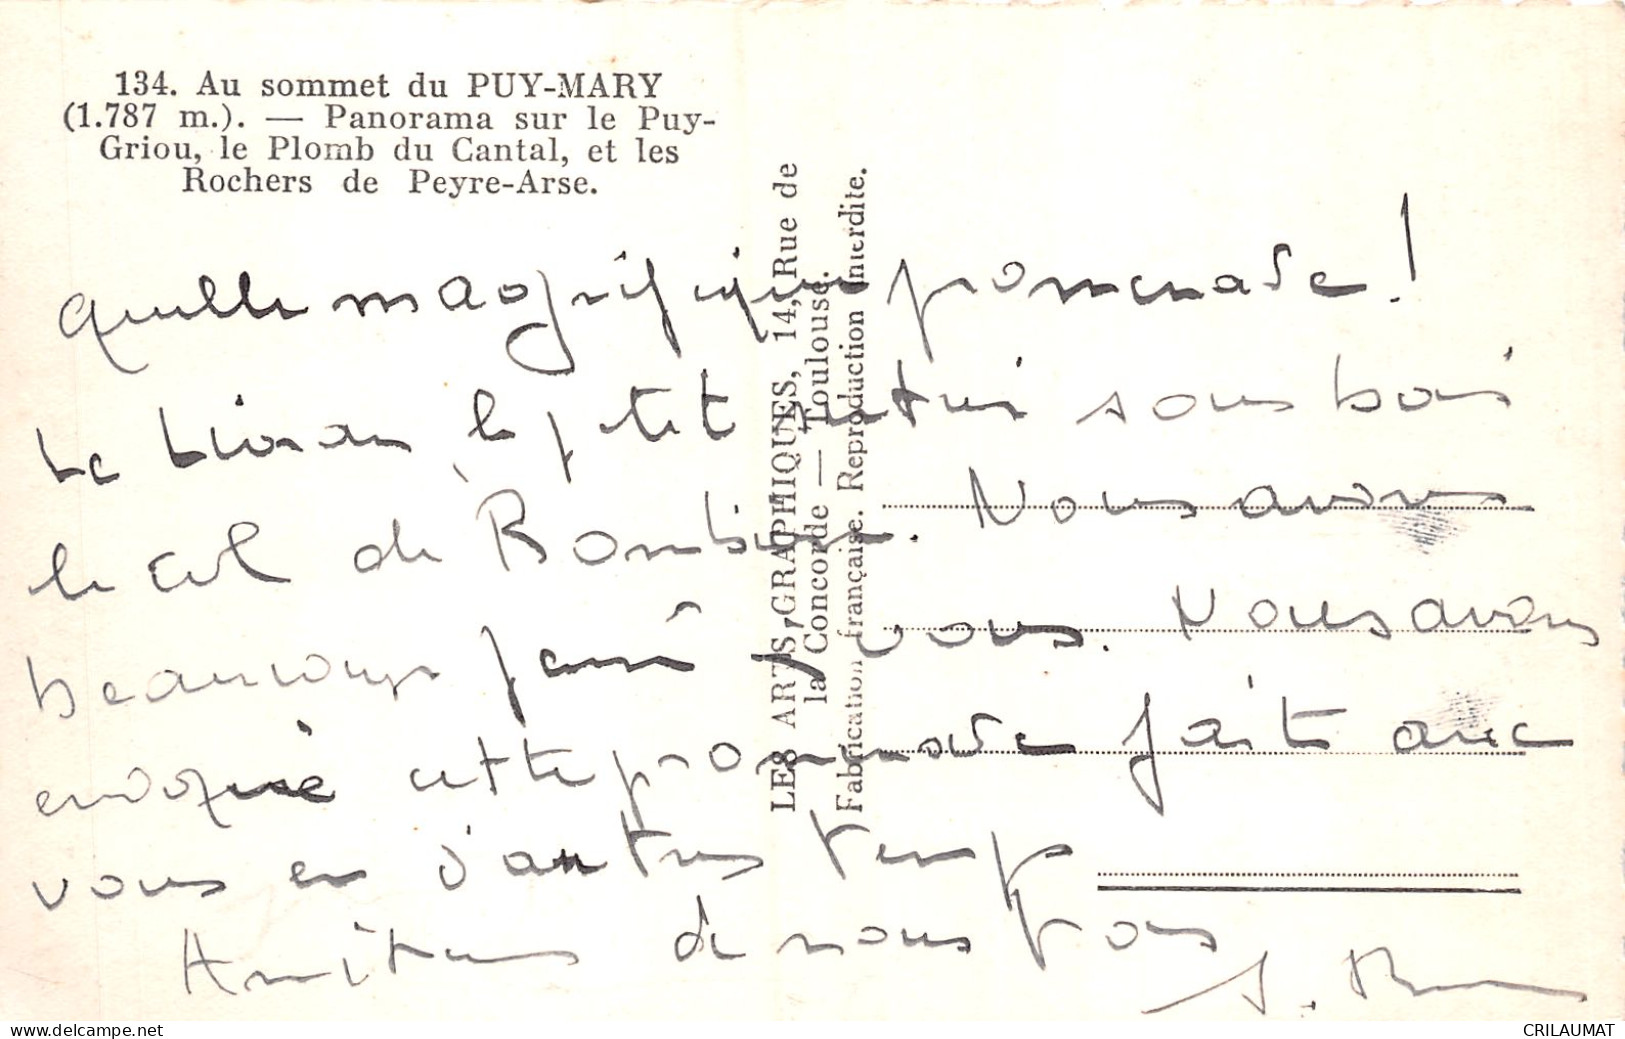 134. Au sommet du PUY-MARY
(1.787 m.). — Panorama sur le Puy-
Griou, le Plomb du Cantal, et les
Rochers de Peyre-Arse.
LES ARTS GRAPHIQUES, 14, Rue de
la Concorde — Toulouse.
Fabrication française. Reproduction interdite.
Quelle magnifique promenade !
Le Lioran, le petit sous bois
le col de Rombière. Nous avons
beaucoup pensé à vous. Nous avons
cette promenade fait avec
vous en d'autres temps
Amitiés de nous pour
www.delcampe.net
CRILAUMAT